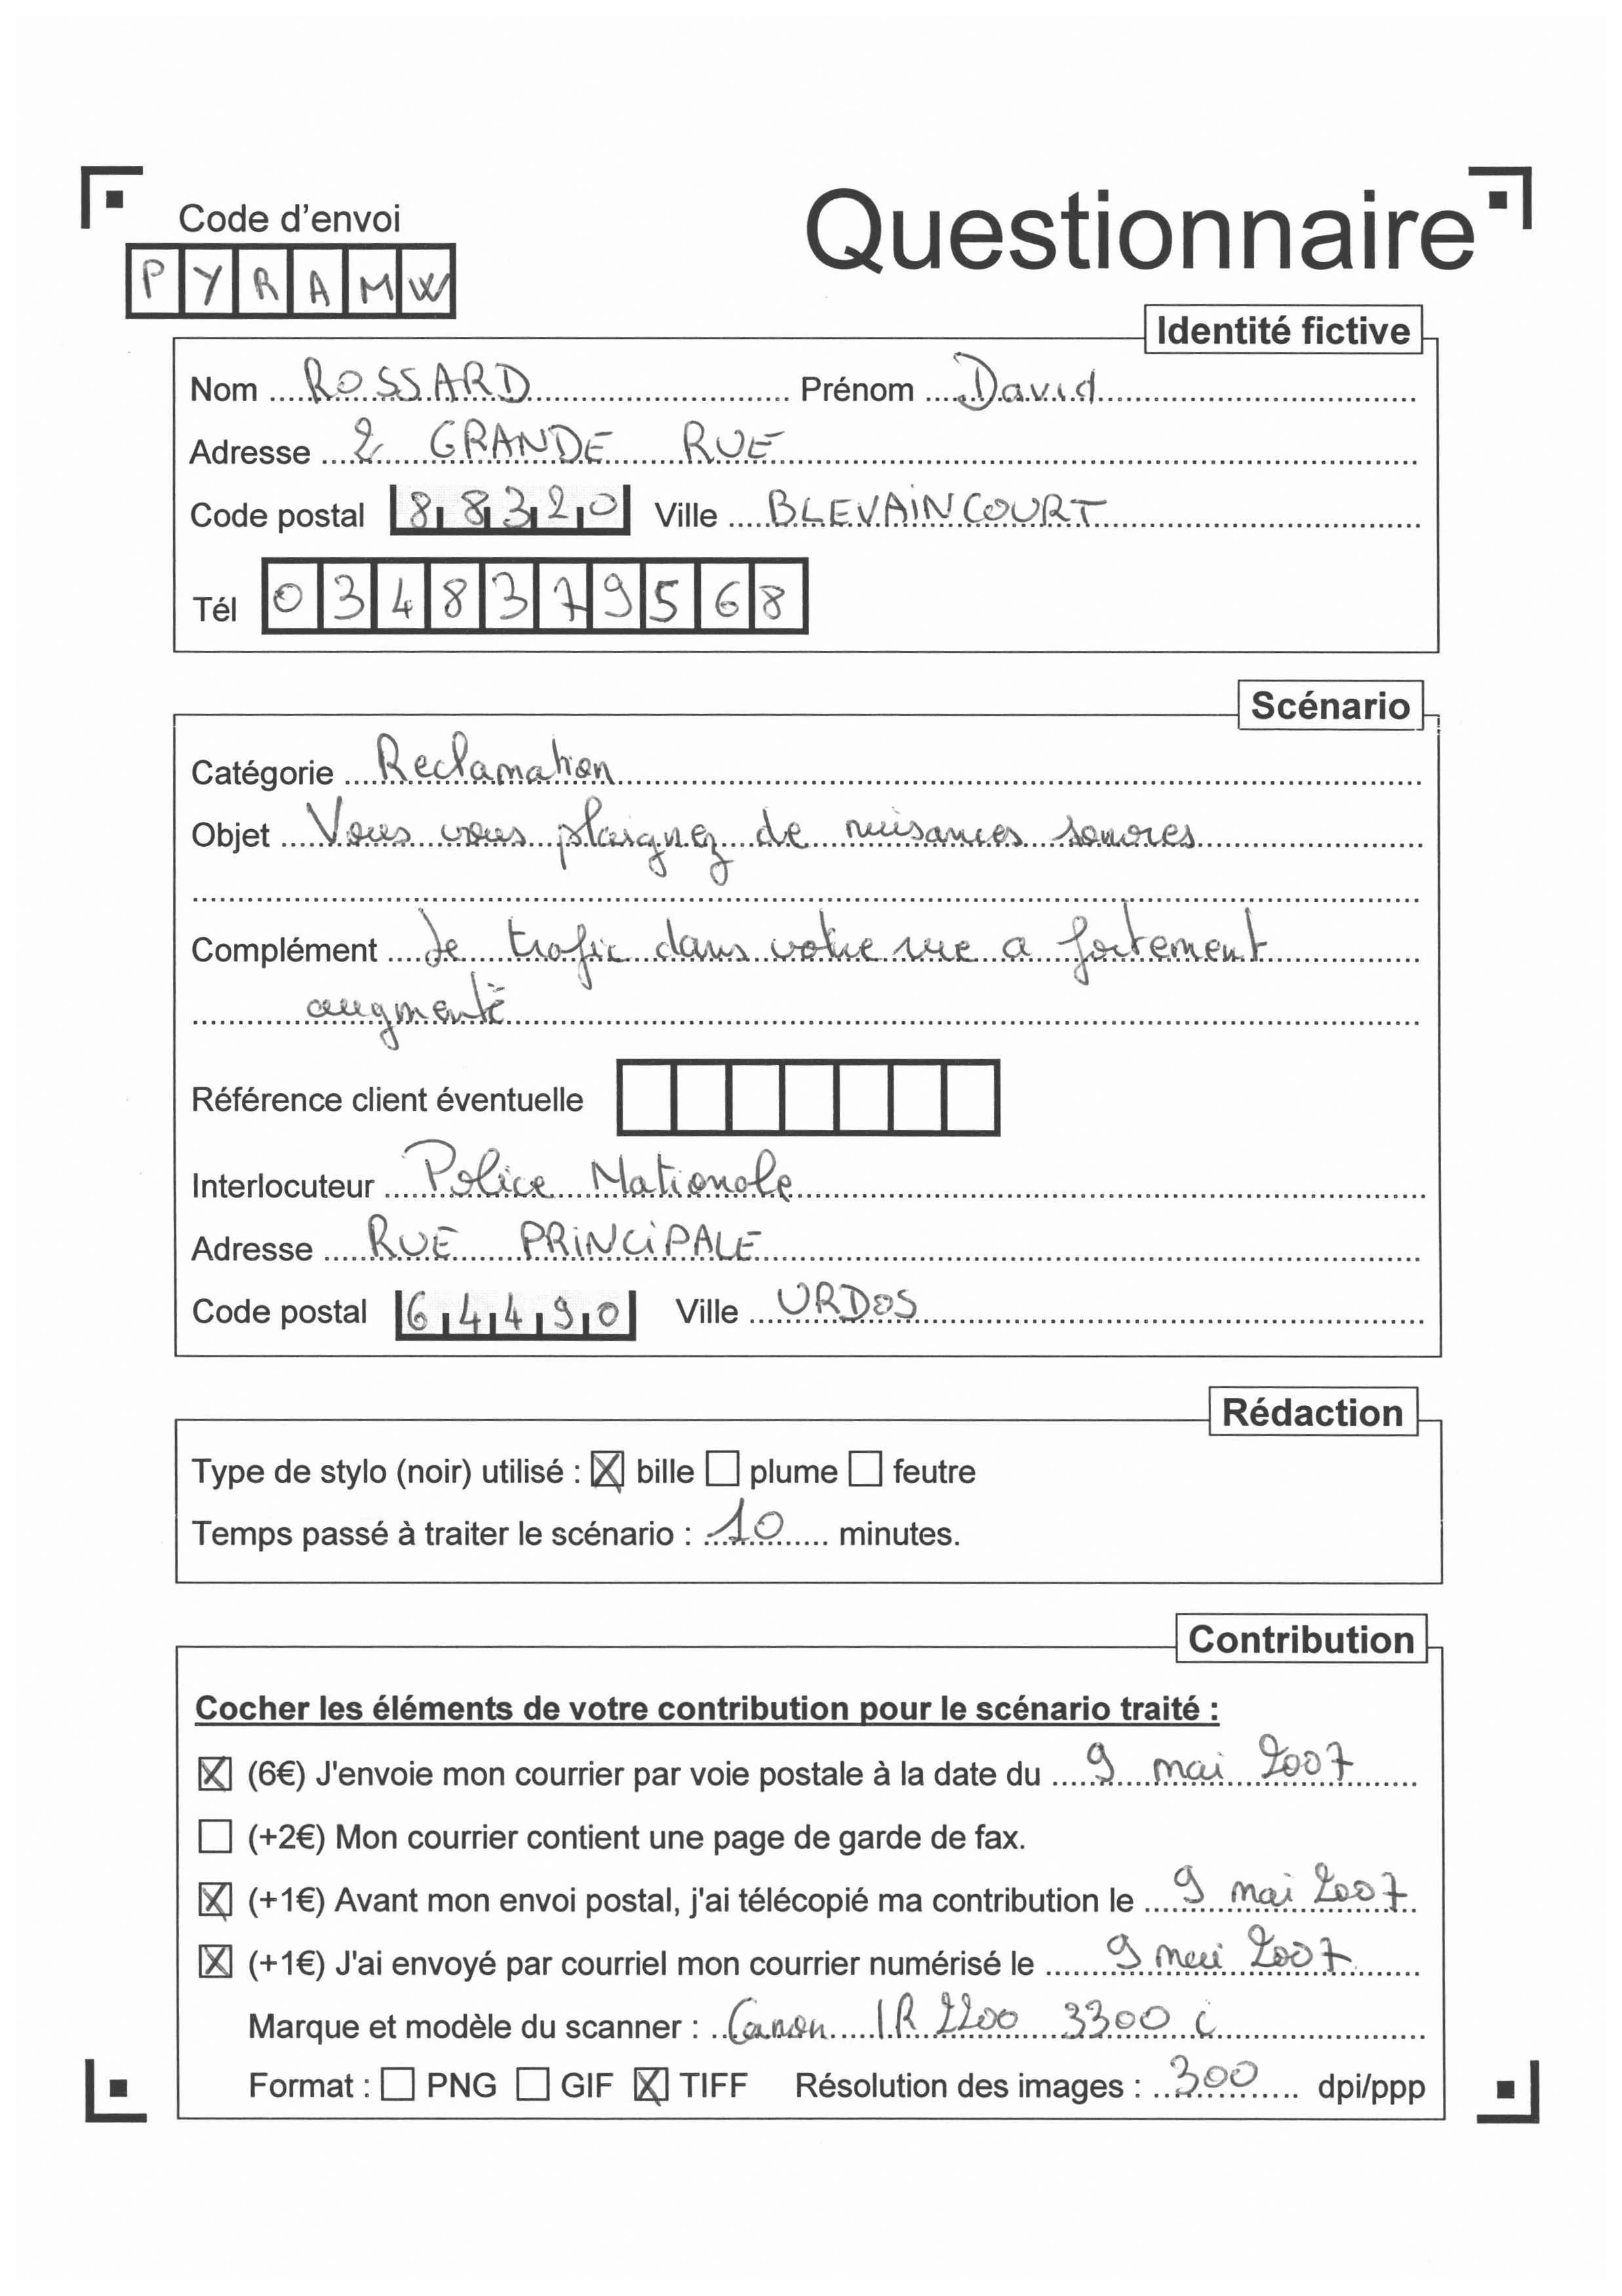 Code d'envoi
Questionnaire
PYRAMW
Identité fictive
Nom ROSSARD Prénom David
Adresse 2 GRANDE RUE
Code postal 88320 Ville BLEVAINCOURT
Tél 0348379568
Scénario
Catégorie Reclamation
Objet Vous vous plaignez de nuisances sonores
Complément Le trafic dans votre rue a fortement
augmenté
Référence client éventuelle
Interlocuteur Police Nationale
Adresse RUE PRINCIPALE
Code postal 64490 Ville URDOS
Rédaction
Type de stylo (noir) utilisé : ☒ bille ☐ plume ☐ feutre
Temps passé à traiter le scénario : 10 minutes.
Contribution
Cocher les éléments de votre contribution pour le scénario traité :
☒ (6€) J'envoie mon courrier par voie postale à la date du 9 mai 2007
☐ (+2€) Mon courrier contient une page de garde de fax.
☒ (+1€) Avant mon envoi postal, j'ai télécopié ma contribution le 9 mai 2007
☒ (+1€) J'ai envoyé par courriel mon courrier numérisé le 9 mai 2007
Marque et modèle du scanner : Canon IR 2200 3300 i
Format : ☐ PNG ☐ GIF ☒ TIFF Résolution des images : 300 dpi/ppp